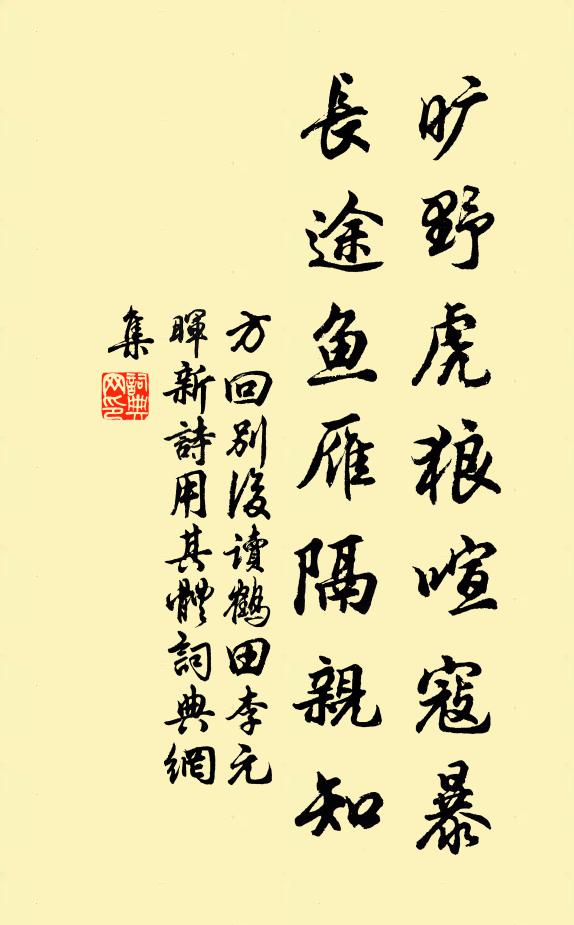 旷野虎狼喧寇暴
長途鱼雁隔親知
方回別後讀鶴田李元
暉新詩用其體詞典網
集
詞典
网印